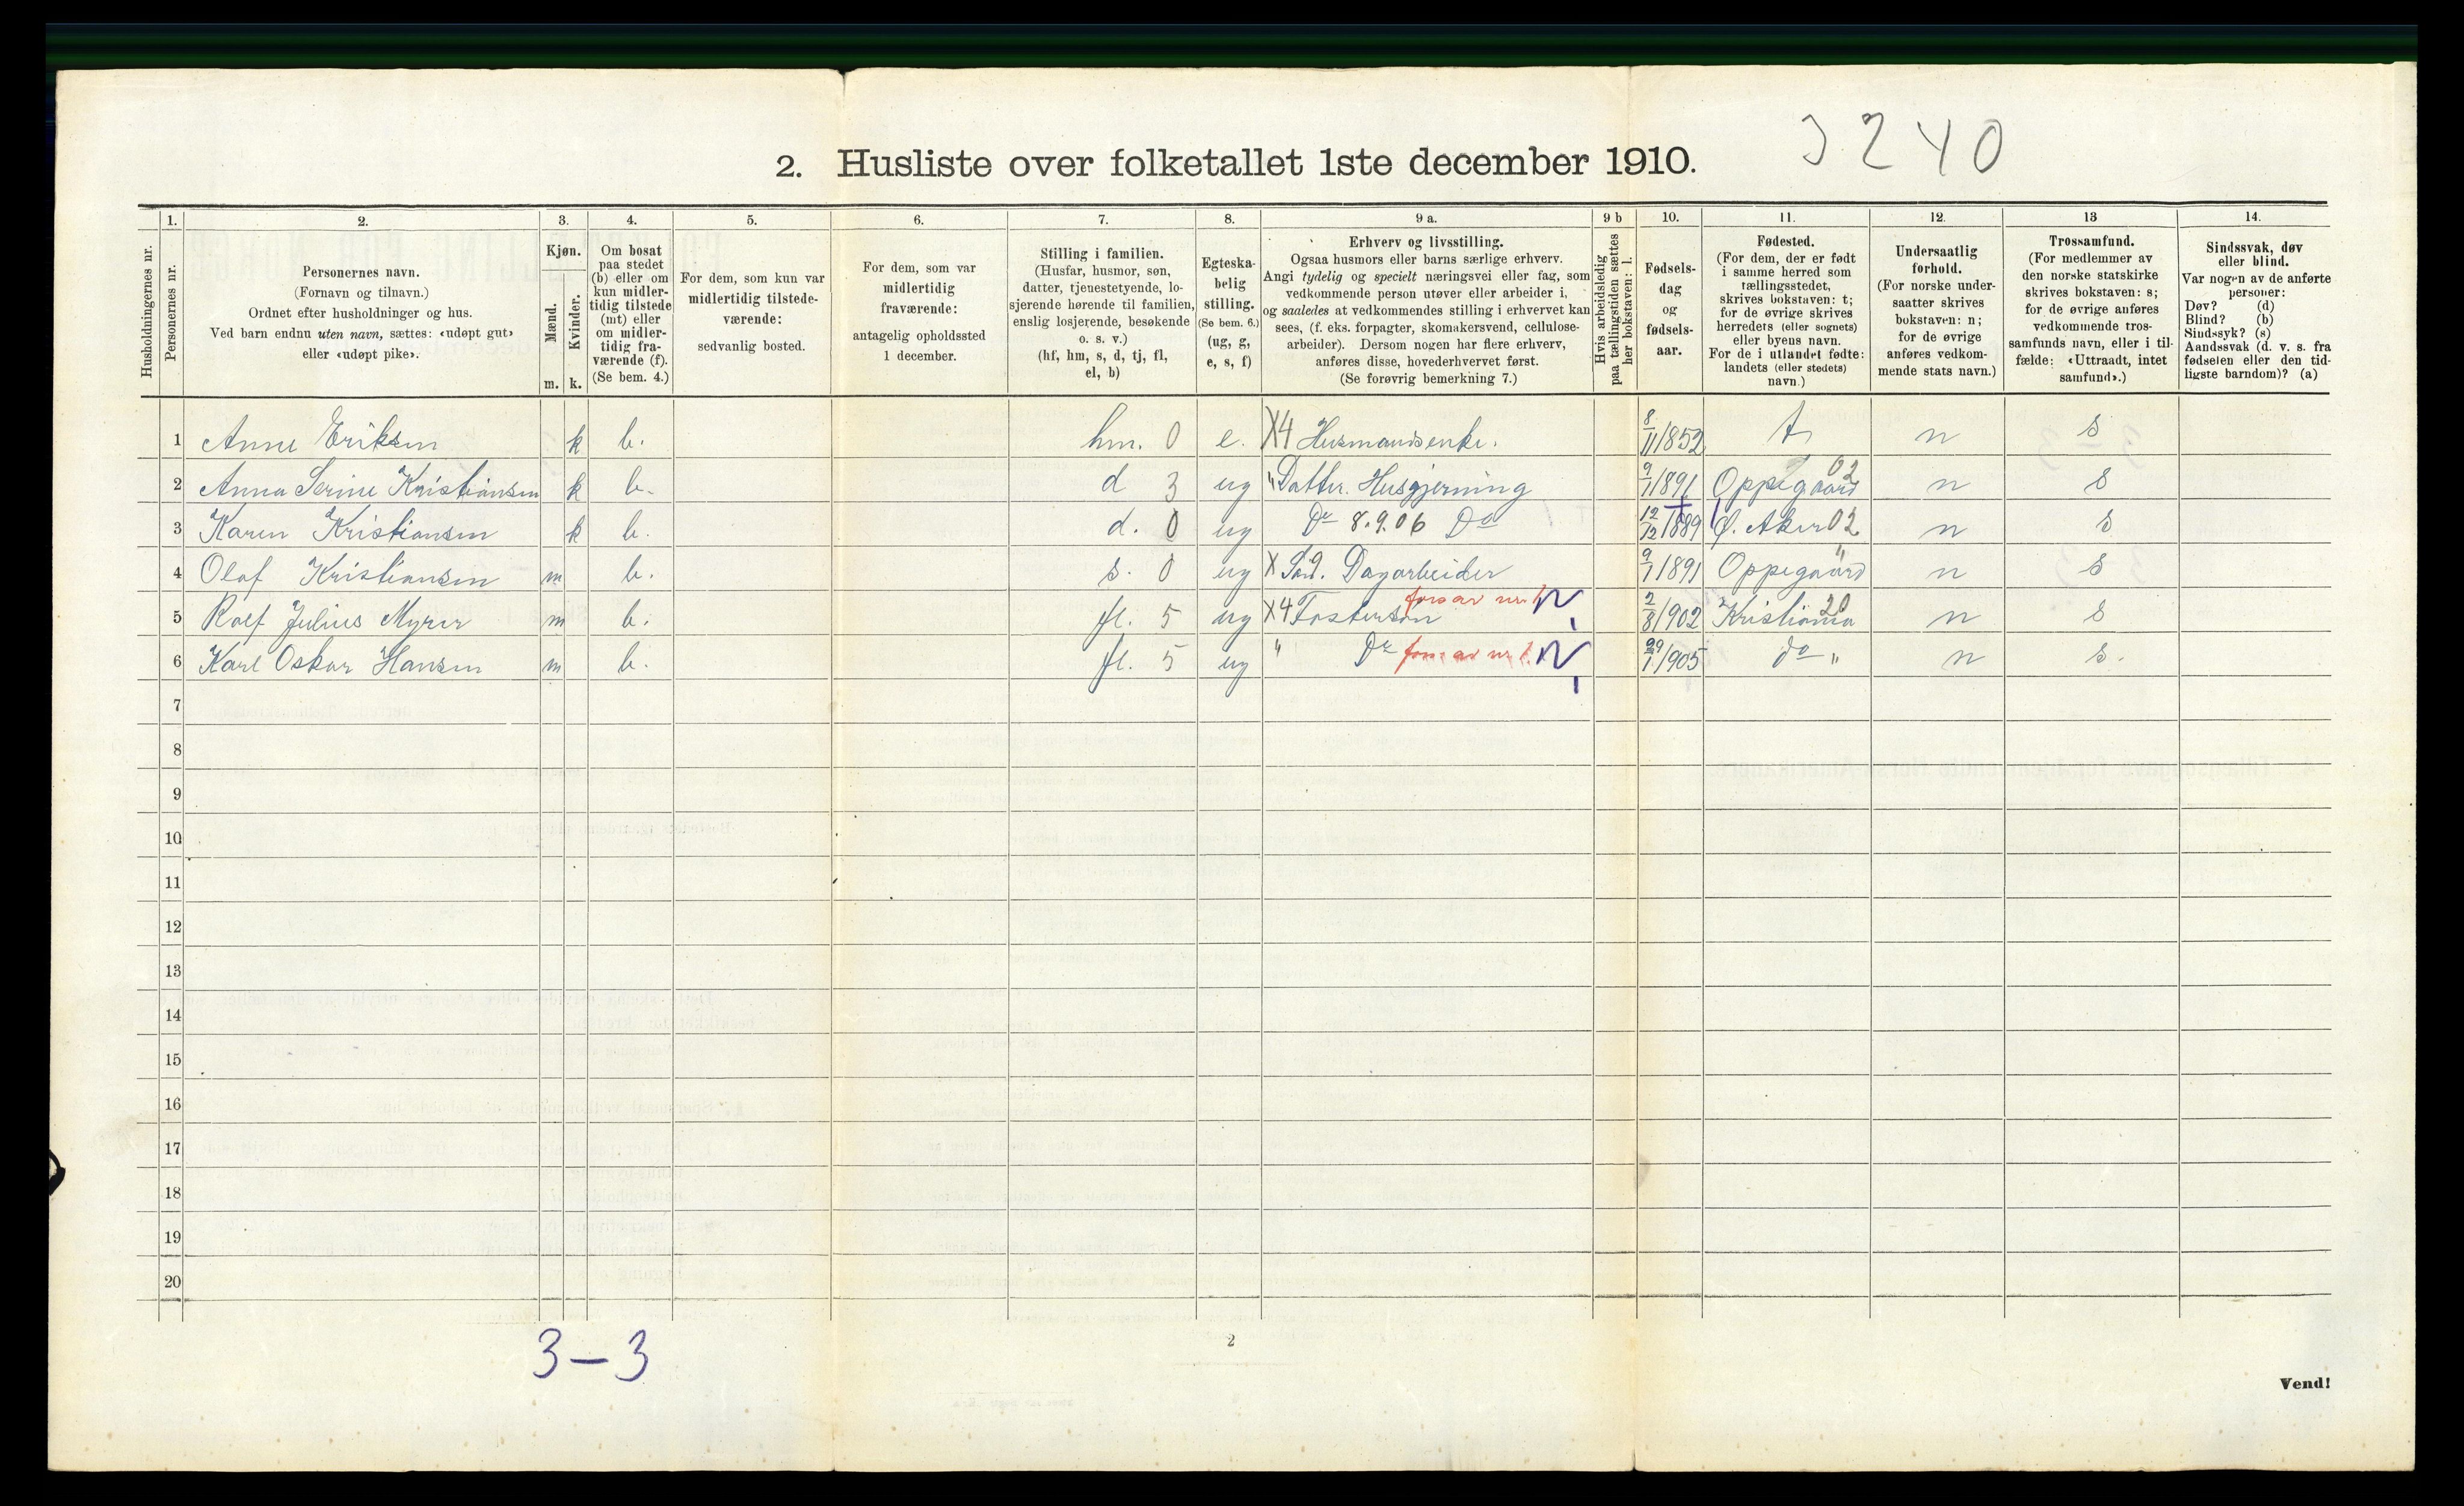 3240
2. Husliste over folketallet 1ste december 1910.
Husholdningernes nr.
1.
Personernes nr.
2.
Personernes navn.
(Fornavn og tilnavn.)
Ordnet efter husholdninger og hus.
Ved barn endnu uten navn, sættes: «udøpt gut»
eller «udøpt pike».
3.
Kjøn.
Mænd.
Kvinder.
m. k.
4.
Om bosat
paa stedet
(b) eller om
kun midler-
tidig tilstede
(mt) eller
om midler-
tidig fra-
værende (f).
(Se bem. 4.)
5.
For dem, som kun var
midlertidig tilstede-
værende:
sedvanlig bosted.
6.
For dem, som var
midlertidig
fraværende:
antagelig opholdssted
1 december.
7.
Stilling i familien.
(Husfar, husmor, søn,
datter, tjenestetyende, lo-
sjerende hørende til familien,
enslig losjerende, besøkende
o. s. v.)
(hf, hm, s, d, tj, fl,
el, b)
8.
Egteska-
belig
stilling.
(Se bem. 6.)
(ug, g,
e, s, f)
9 a.
Erhverv og livsstilling.
Ogsaa husmors eller barns særlige erhverv.
Angi tydelig og specielt næringsvei eller fag, som
vedkommende person utøver eller arbeider i,
og saaledes at vedkommendes stilling i erhvervet kan
sees, (f. eks. forpagter, skomakersvend, cellulose-
arbeider). Dersom nogen har flere erhverv,
anføres disse, hovederhvervet først.
(Se forøvrig bemerkning 7.)
9 b
Hvis arbeidsledig
paa tællingstiden sættes
her bokstaven: l.
10.
Fødsels-
dag
og
fødsels-
aar.
11.
Fødested.
(For dem, der er født
i samme herred som
tællingsstedet,
skrives bokstaven: t;
for de øvrige skrives
herredets (eller sognets)
eller byens navn.
For de i utlandet fødte:
landets (eller stedets)
navn.)
12.
Undersaatlig
forhold.
(For norske under-
saatter skrives
bokstaven: n;
for de øvrige
anføres vedkom-
mende stats navn.)
13
Trossamfund.
(For medlemmer av
den norske statskirke
skrives bokstaven: s;
for de øvrige anføres
vedkommende tros-
samfunds navn, eller i til-
fælde: «Uttraadt, intet
samfund».)
14.
Sindssvak, døv
eller blind.
Var nogen av de anførte
personer:
Døv? (d)
Blind? (b)
Sindssyk? (s)
Aandssvak (d. v. s. fra
fødselen eller den tid-
ligste barndom)? (a)
1 Anne Eriksen k b. hm. 0 e. X4 Husmandsenke. 8/11 1852 t n s
2 Anna Serine Kristiansen k b. d 3 ug " Datter. Husgjerning 9/1 1891 Oppegaard 02 n s
3 Karen Kristiansen k b. d. 0 ug Do 8.9.06 Do 12/12 1889 Ø. Aker 02 n s
4 Olaf Kristiansen m b. s. 0 ug X Søn. Dagarbeider 9/1 1891 Oppegaard " n s
5 Rolf Julius Myrer m b. fl. 5 ug X4 Fostersøn fors av nr. 1. 2/8 1902 Kristiania 20 n s
6 Karl Oskar Hansen m b. fl. 5 ug " Do fors av nr 1. 29/1 1905 do " n s.
7
8
9
10
11
12
13
14
15
16
17
18
19
20
3-3
2
Vend!